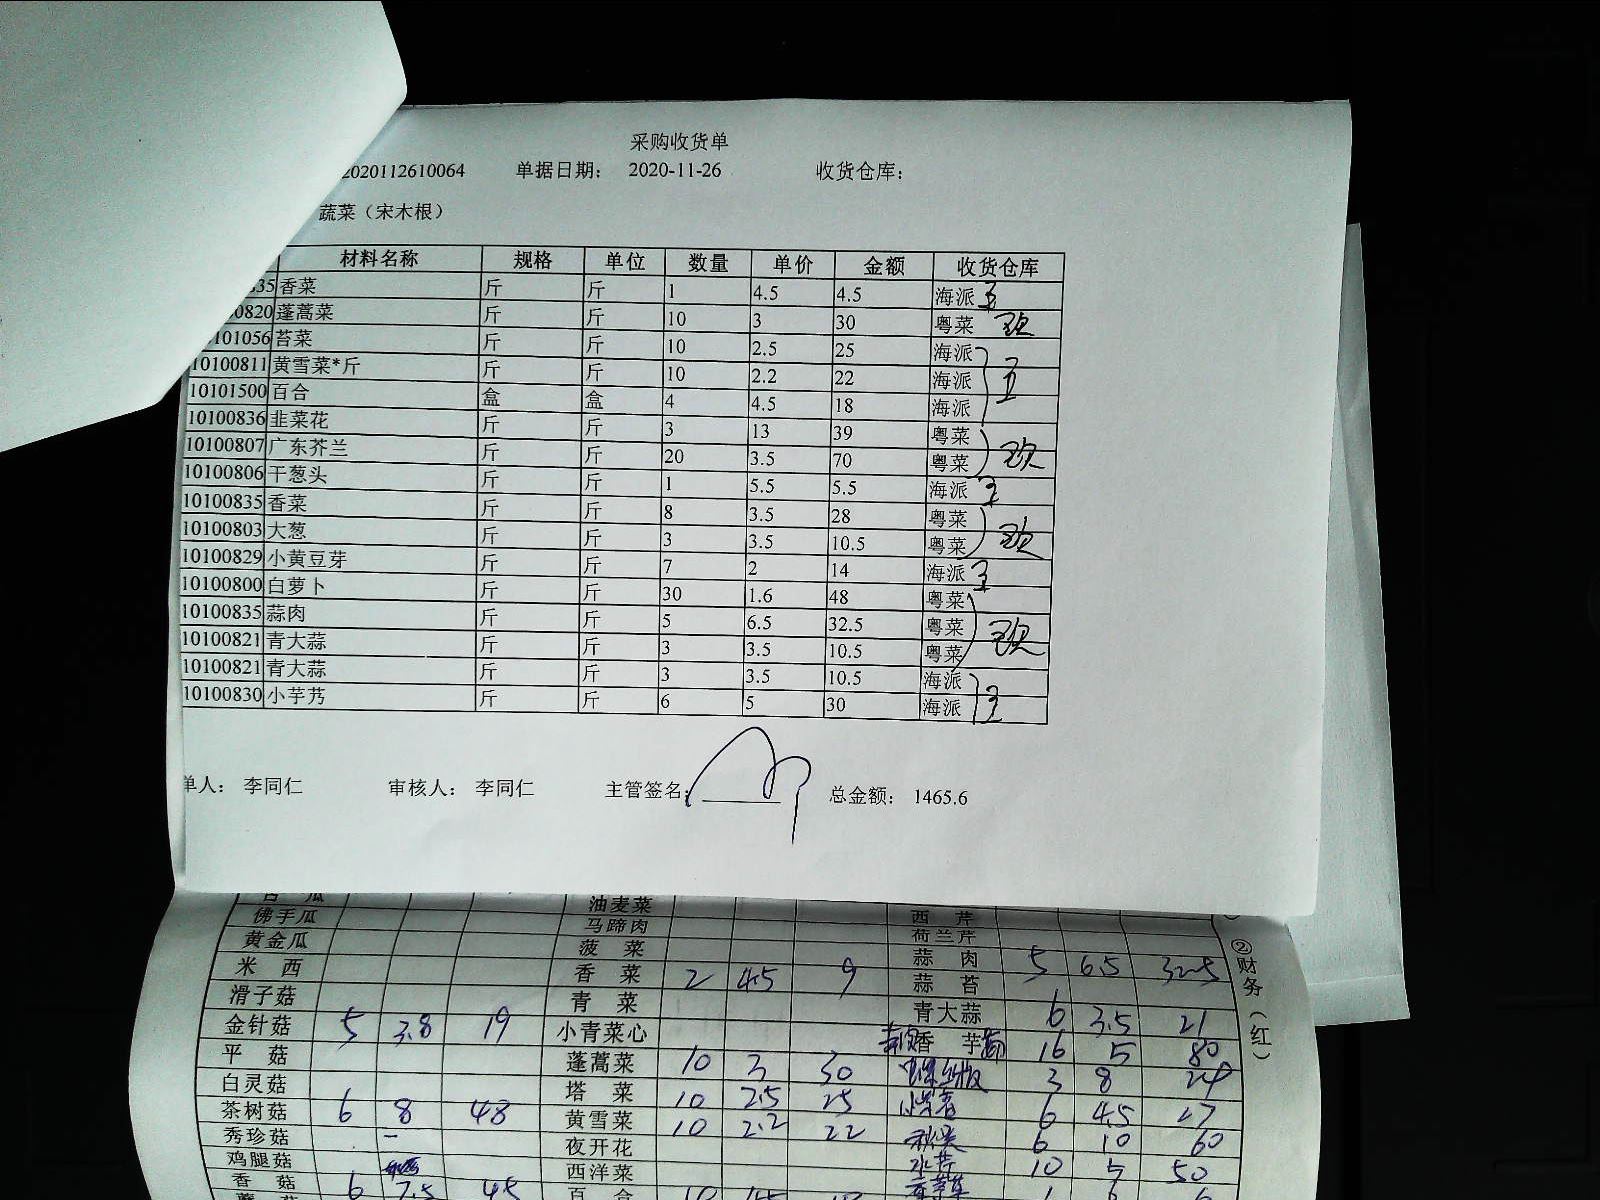 采购收货单
2020112610064 单据日期： 2020-11-26 收货仓库：
蔬菜（宋木根）
材料名称 规格 单位 数量 单价 金额 收货仓库
35 香菜 斤 斤 1 4.5 4.5 海派
0820 蓬蒿菜 斤 斤 10 3 30 粤菜
101056 苔菜 斤 斤 10 2.5 25 海派
10100811 黄雪菜*斤 斤 斤 10 2.2 22 海派
10101500 百合 盒 盒 4 4.5 18 海派
10100836 韭菜花 斤 斤 3 13 39 粤菜
10100807 广东芥兰 斤 斤 20 3.5 70 粤菜
10100806 干葱头 斤 斤 1 5.5 5.5 海派
10100835 香菜 斤 斤 8 3.5 28 粤菜
10100803 大葱 斤 斤 3 3.5 10.5 粤菜
10100829 小黄豆芽 斤 斤 7 2 14 海派
10100800 白萝卜 斤 斤 30 1.6 48 粤菜
10100835 蒜肉 斤 斤 5 6.5 32.5 粤菜
10100821 青大蒜 斤 斤 3 3.5 10.5 粤菜
10100821 青大蒜 斤 斤 3 3.5 10.5 海派
10100830 小芋艿 斤 斤 6 5 30 海派
单人： 李同仁 审核人： 李同仁 主管签名： 总金额： 1465.6
瓜 油麦菜 西芹
佛手瓜 马蹄肉 荷兰芹
黄金瓜 菠菜 蒜肉 5 6.5 32.5
米西 香菜 2 4.5 9 蒜苔
滑子菇 青菜 青大蒜 6 3.5 21
金针菇 5 3.8 19 小青菜心 香芋 16 5 80
平菇 蓬蒿菜 10 3 30 3 8 24
白灵菇 塔菜 10 2.5 25 6 4.5 27
茶树菇 6 8 48 黄雪菜 10 2.2 22 6 10 60
秀珍菇 夜开花 水芹 10 5 50
鸡腿菇 西洋菜
香菇 6 7.5 45 百合
②财务（红）